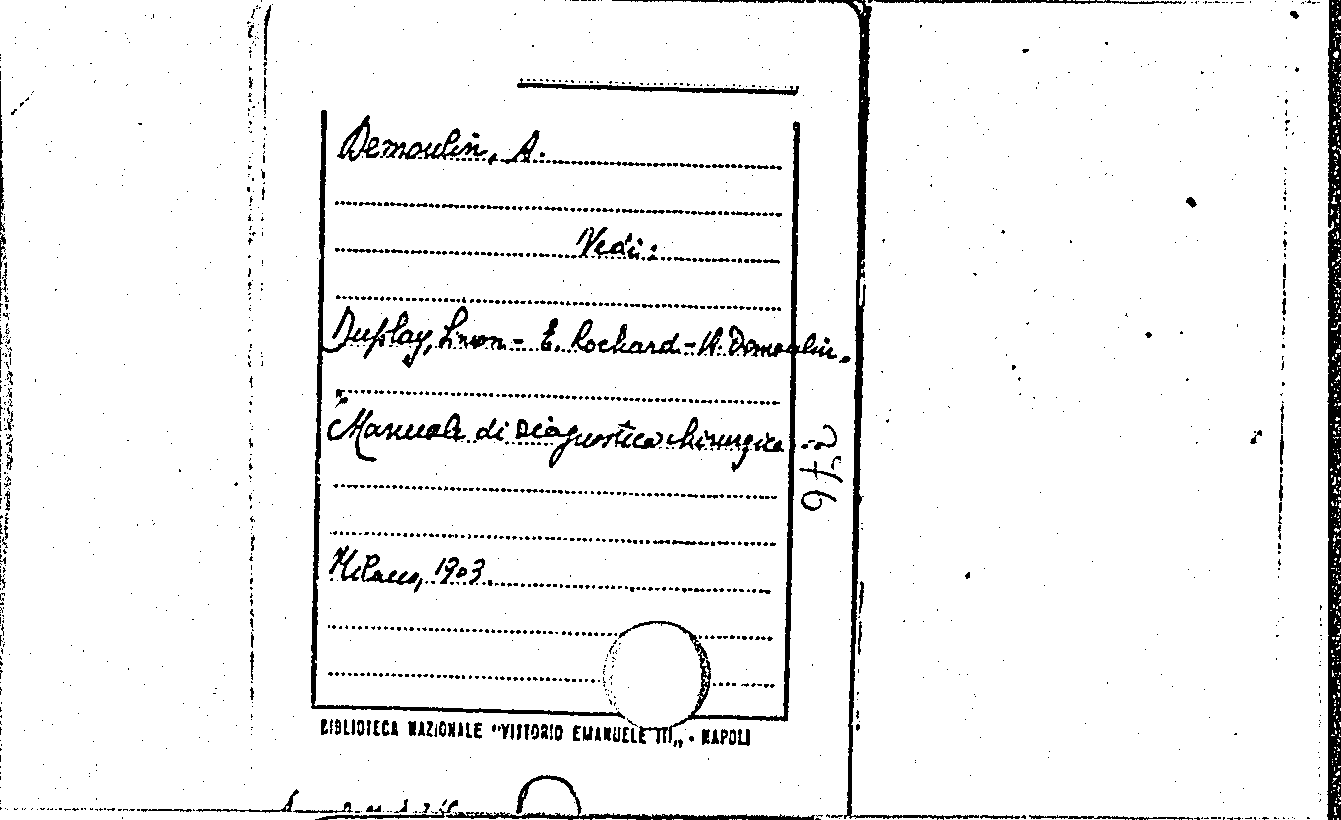 Demoulin, A.
Vedi:
Duplay, Simon - E. Rochard - A. Demoulin.
Manuale di Diagnostica chirurgica
Milano, 1903.
BIBLIOTECA NAZIONALE "VITTORIO EMANUELE III„ - NAPOLI